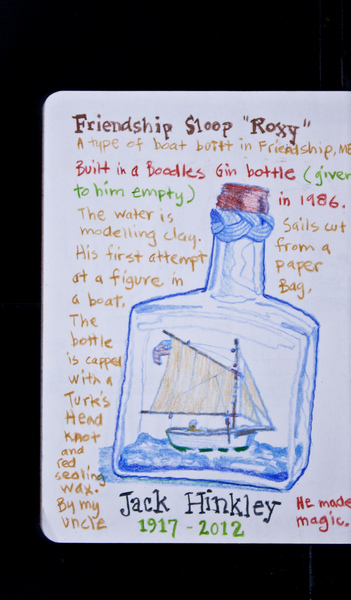 Friendship Sloop "Roxy"
A type of boat built in Friendship, ME
Built in a Boodles Gin bottle (given
to him empty) in 1986.
The water is
modelling clay.
His first attempt
at a figure in
a boat.
Sails cut
from a
paper
Bag.
The
bottle
is capped
with a
Turk's
Head
knot
and
red
sealing
wax.
By my
uncle
Jack Hinkley
1917 - 2012
He made
magic.